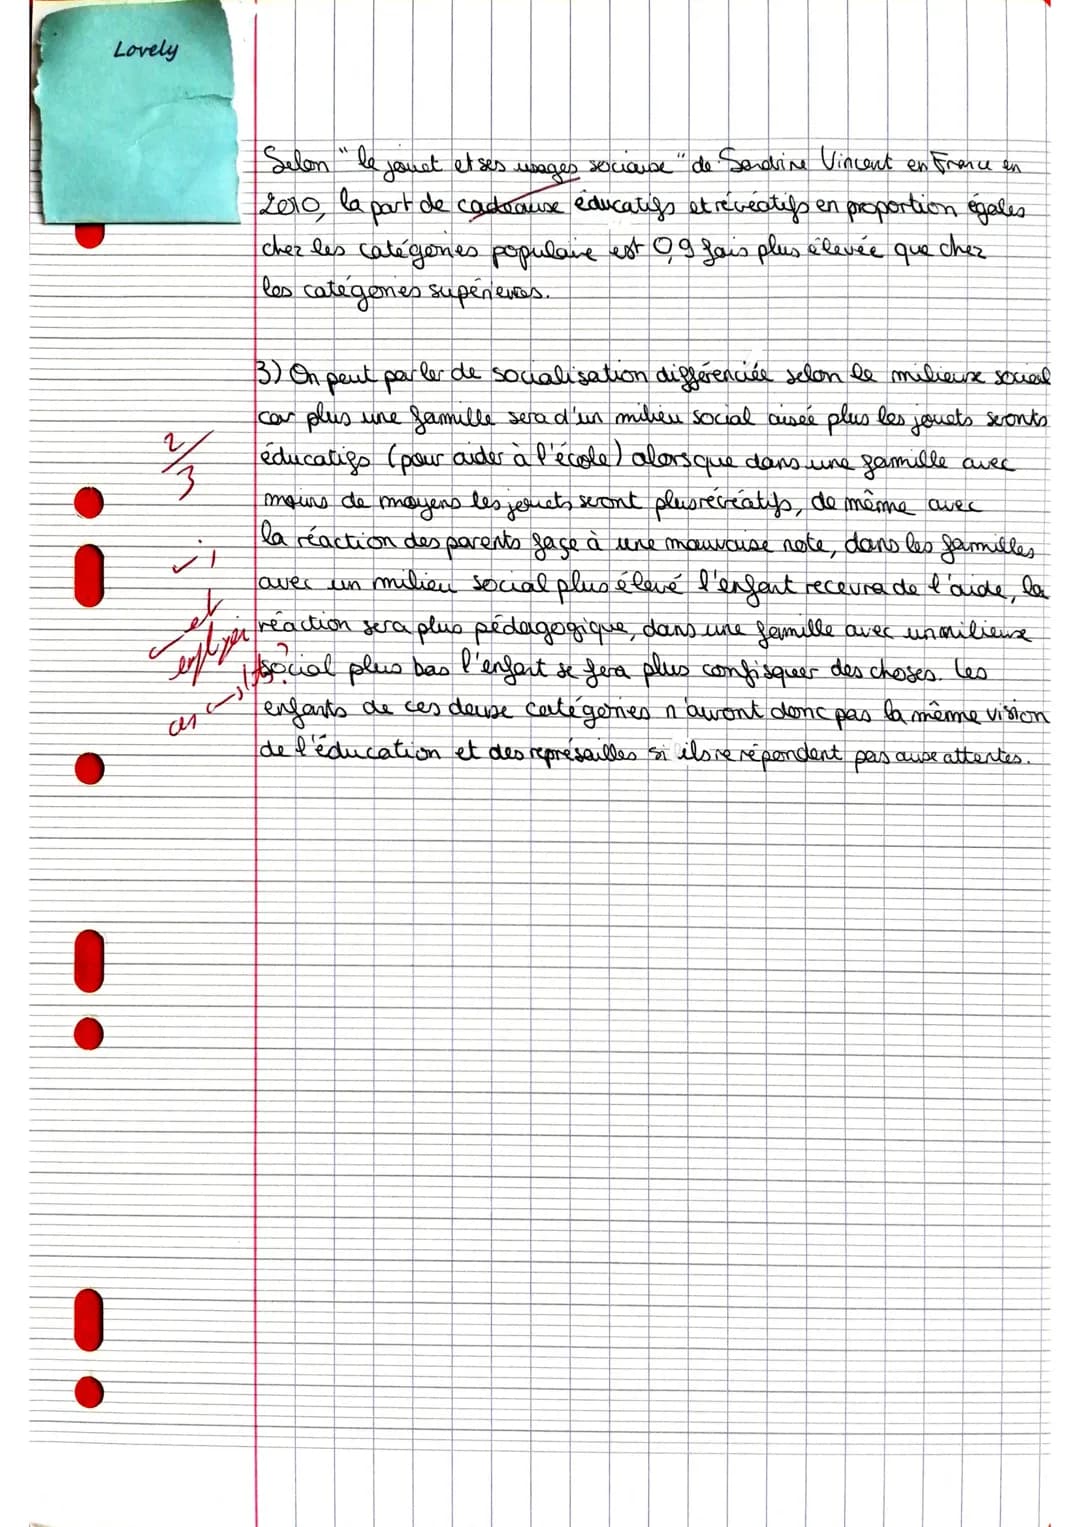 Lovely
Selon "le jouet et ses usages sociaux" de Sandrine Vincent en France en
2010, la part de cadeaux éducatifs et récréatifs en proportion égales
chez les catégories populaire est 0,9 fois plus élevée que chez
les catégories supérieures.
3) On peut parler de socialisation différenciée selon le milieux social
car plus une famille sera d'un milieu social aisée plus les jouets seronts
2/3
éducatifs (pour aider à l'école) alors que dans une famille avec
moins de moyens les jouets seront plus récréatifs, de même avec
la réaction des parents façe à une mauvaise note, dans les familles
avec un milieu social plus élevé l'enfant recevra de l'aide, la
et
réaction sera plus pédagogique, dans une famille avec un milieux
social plus bas l'enfant se fera plus confisquer des choses. Les
enfants de ces deux catégories n'auront donc pas la même vision
de l'éducation et des représailles si ils ne répondent pas aux attentes.